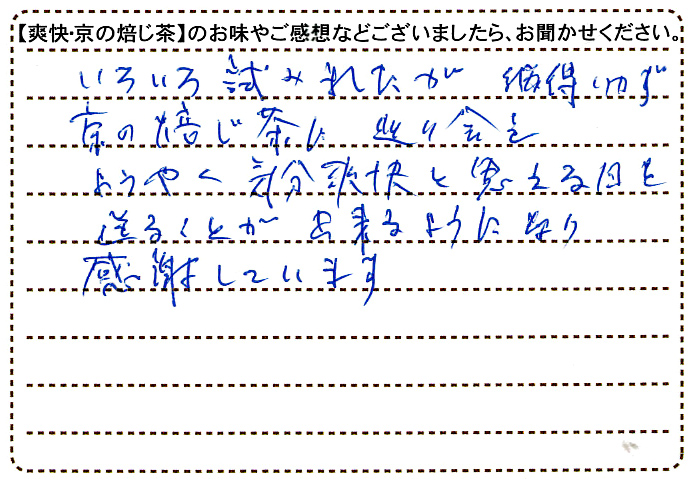 【爽快・京の焙じ茶】のお味やご感想などございましたら、お聞かせください。
いろいろ試みれたが 納得いかず
京の焙じ茶に 巡り会え
ようやく 気分爽快と思える日を
送ることが出来るようになり
感謝しています